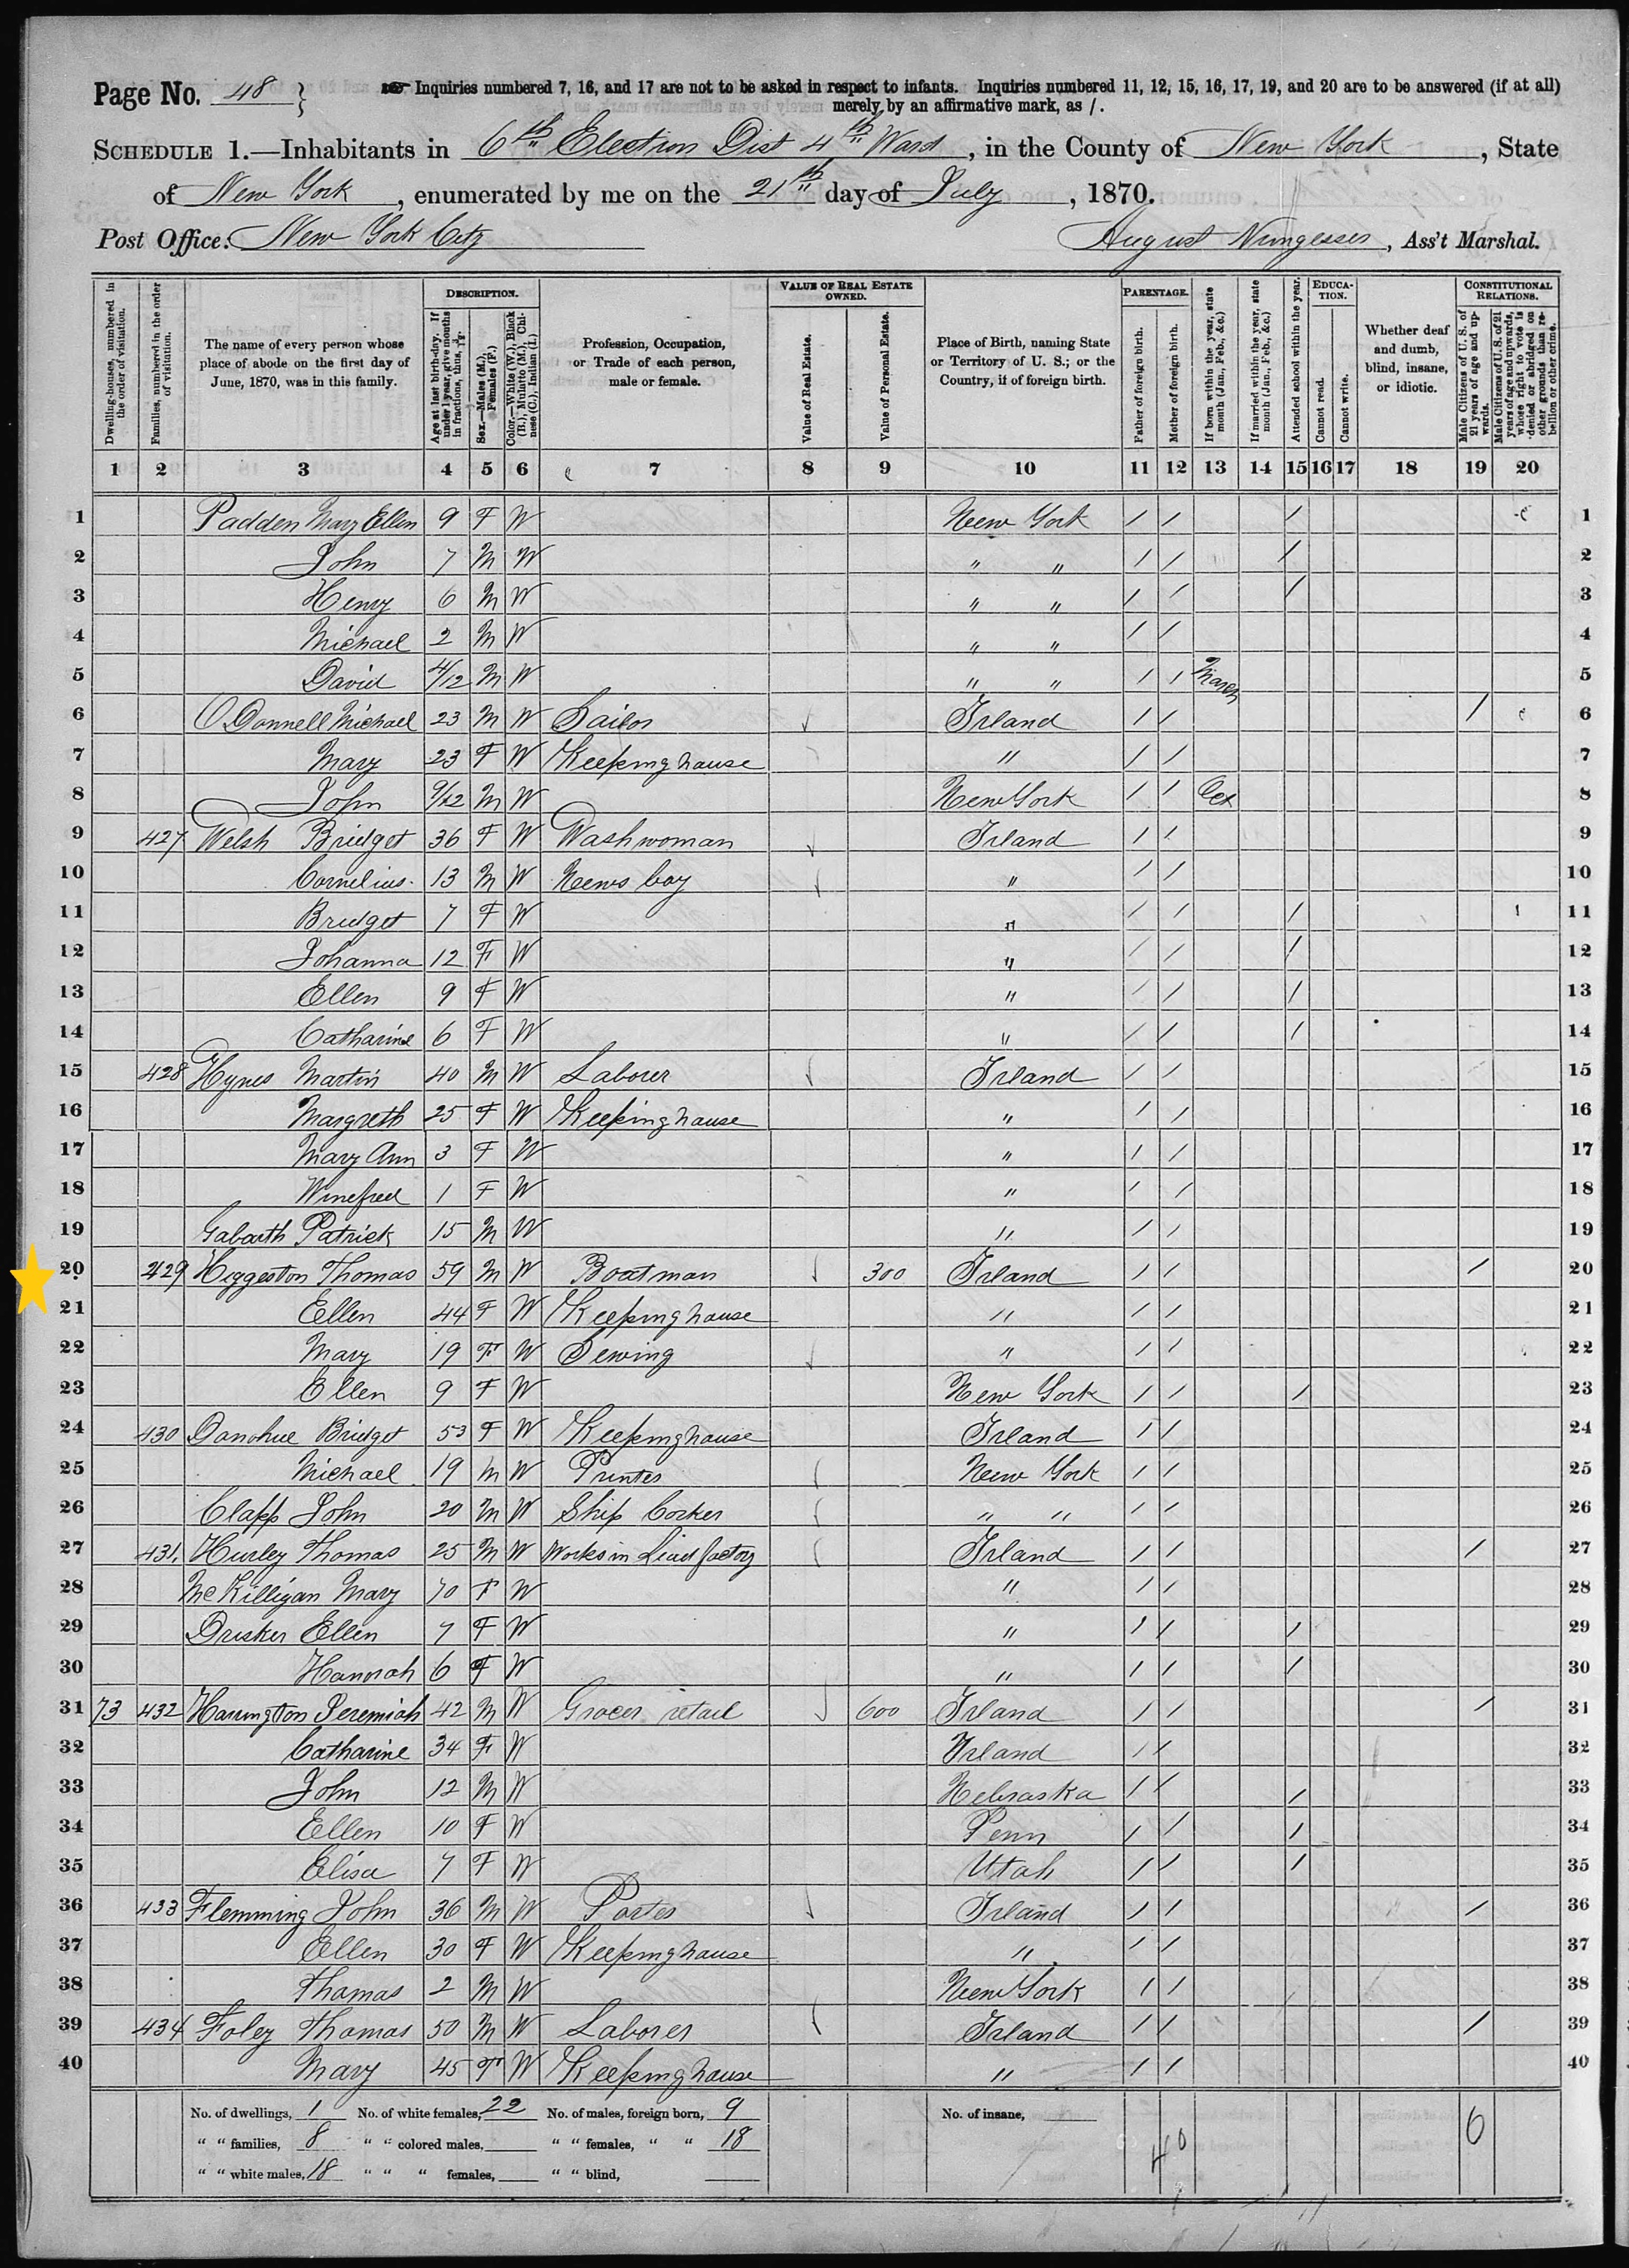 Page No. 48 } Inquiries numbered 7, 16, and 17 are not to be asked in respect to infants. Inquiries numbered 11, 12, 15, 16, 17, 19, and 20 are to be answered (if at all)
merely by an affirmative mark, as /.
SCHEDULE 1.—Inhabitants in 6th Election Dist 4th Ward, in the County of New York, State
of New York, enumerated by me on the 21th day of July, 1870.
Post Office: New York City August Nungesser, Ass't Marshal.
Dwelling-houses, numbered in the order of visitation.
Families, numbered in the order of visitation.
The name of every person whose place of abode on the first day of June, 1870, was in this family.
DESCRIPTION.
Age at last birth-day. If under 1 year, give months in fractions, thus, 3/12.
Sex.—Males (M.), Females (F.)
Color.—White (W.), Black (B.), Mulatto (M.), Chinese (C.), Indian (I.)
Profession, Occupation, or Trade of each person, male or female.
VALUE OF REAL ESTATE OWNED.
Value of Real Estate.
Value of Personal Estate.
Place of Birth, naming State or Territory of U. S.; or the Country, if of foreign birth.
PARENTAGE.
Father of foreign birth.
Mother of foreign birth.
If born within the year, state month (Jan., Feb., &c.)
If married within the year, state month (Jan., Feb., &c.)
Attended school within the year.
EDUCATION.
Cannot read.
Cannot write.
Whether deaf and dumb, blind, insane, or idiotic.
CONSTITUTIONAL RELATIONS.
Male Citizens of U. S. of 21 years of age and upwards.
Male Citizens of U. S. of 21 years of age and upwards, whose right to vote is denied or abridged on other grounds than rebellion or other crime.
1 2 3 4 5 6 7 8 9 10 11 12 13 14 15 16 17 18 19 20
1 Padden Mary Ellen 9 F W New York / / / 1
2 John 7 M W " " / / / 2
3 Henry 6 M W " " / / / 3
4 Michael 2 M W " " / / 4
5 David 4/12 M W " " / / March 5
6 O Donnell Michael 23 M W Sailor Irland / / / 6
7 Mary 23 F W Keeping house " / / 7
8 John 9/12 M W New York / / Oct 8
9 427 Welsh Bridget 36 F W Wash woman Irland / / 9
10 Cornelius 13 M W News boy " / / 10
11 Bridget 7 F W " / / / 11
12 Johanna 12 F W " / / / 12
13 Ellen 9 F W " / / / 13
14 Catharine 6 F W " / / / 14
15 428 Hynes Martin 40 M W Laborer Irland / / 15
16 Margreth 25 F W Keeping house " / / 16
17 Mary Ann 3 F W " / / 17
18 Winefred 1 F W " / / 18
19 Gabarth Patrick 15 M W " / / 19
20 429 Higgeston Thomas 59 M W Boatman 300 Irland / / / 20
21 Ellen 44 F W Keeping house " / / 21
22 Mary 19 F W Sewing " / / 22
23 Ellen 9 F W New York / / / 23
24 430 Donohue Bridget 53 F W Keeping house Irland / / 24
25 Michael 19 M W Printer New York / / 25
26 Clapp John 20 M W Ship Corker " " / / 26
27 431. Hurley Thomas 25 M W Works in Lead factory Irland / / / 27
28 McKilligan Mary 70 F W " / / 28
29 Drisker Ellen 7 F W " / / / 29
30 Hanorah 6 F W " / / / 30
31 73 432 Harrington Jeremiah 42 M W Grocer retail 600 Irland / / / 31
32 Catharine 34 F W Irland / / 32
33 John 12 M W Nebraska / / / 33
34 Ellen 10 F W Penn / / / 34
35 Elisa 7 F W Utah / / / 35
36 433 Flemming John 36 M W Porter Irland / / / 36
37 Ellen 30 F W Keeping house " / / 37
38 Thomas 2 M W New York / / 38
39 434 Foley Thomas 50 M W Laborer Irland / / / 39
40 Mary 45 F W Keeping house " / / 40
No. of dwellings, 1 No. of white females, 22 No. of males, foreign born, 9 No. of insane,
" " families, 8 " " colored males, " " females, " " 18 40 6
" " white males, 18 " " " females, " " blind,